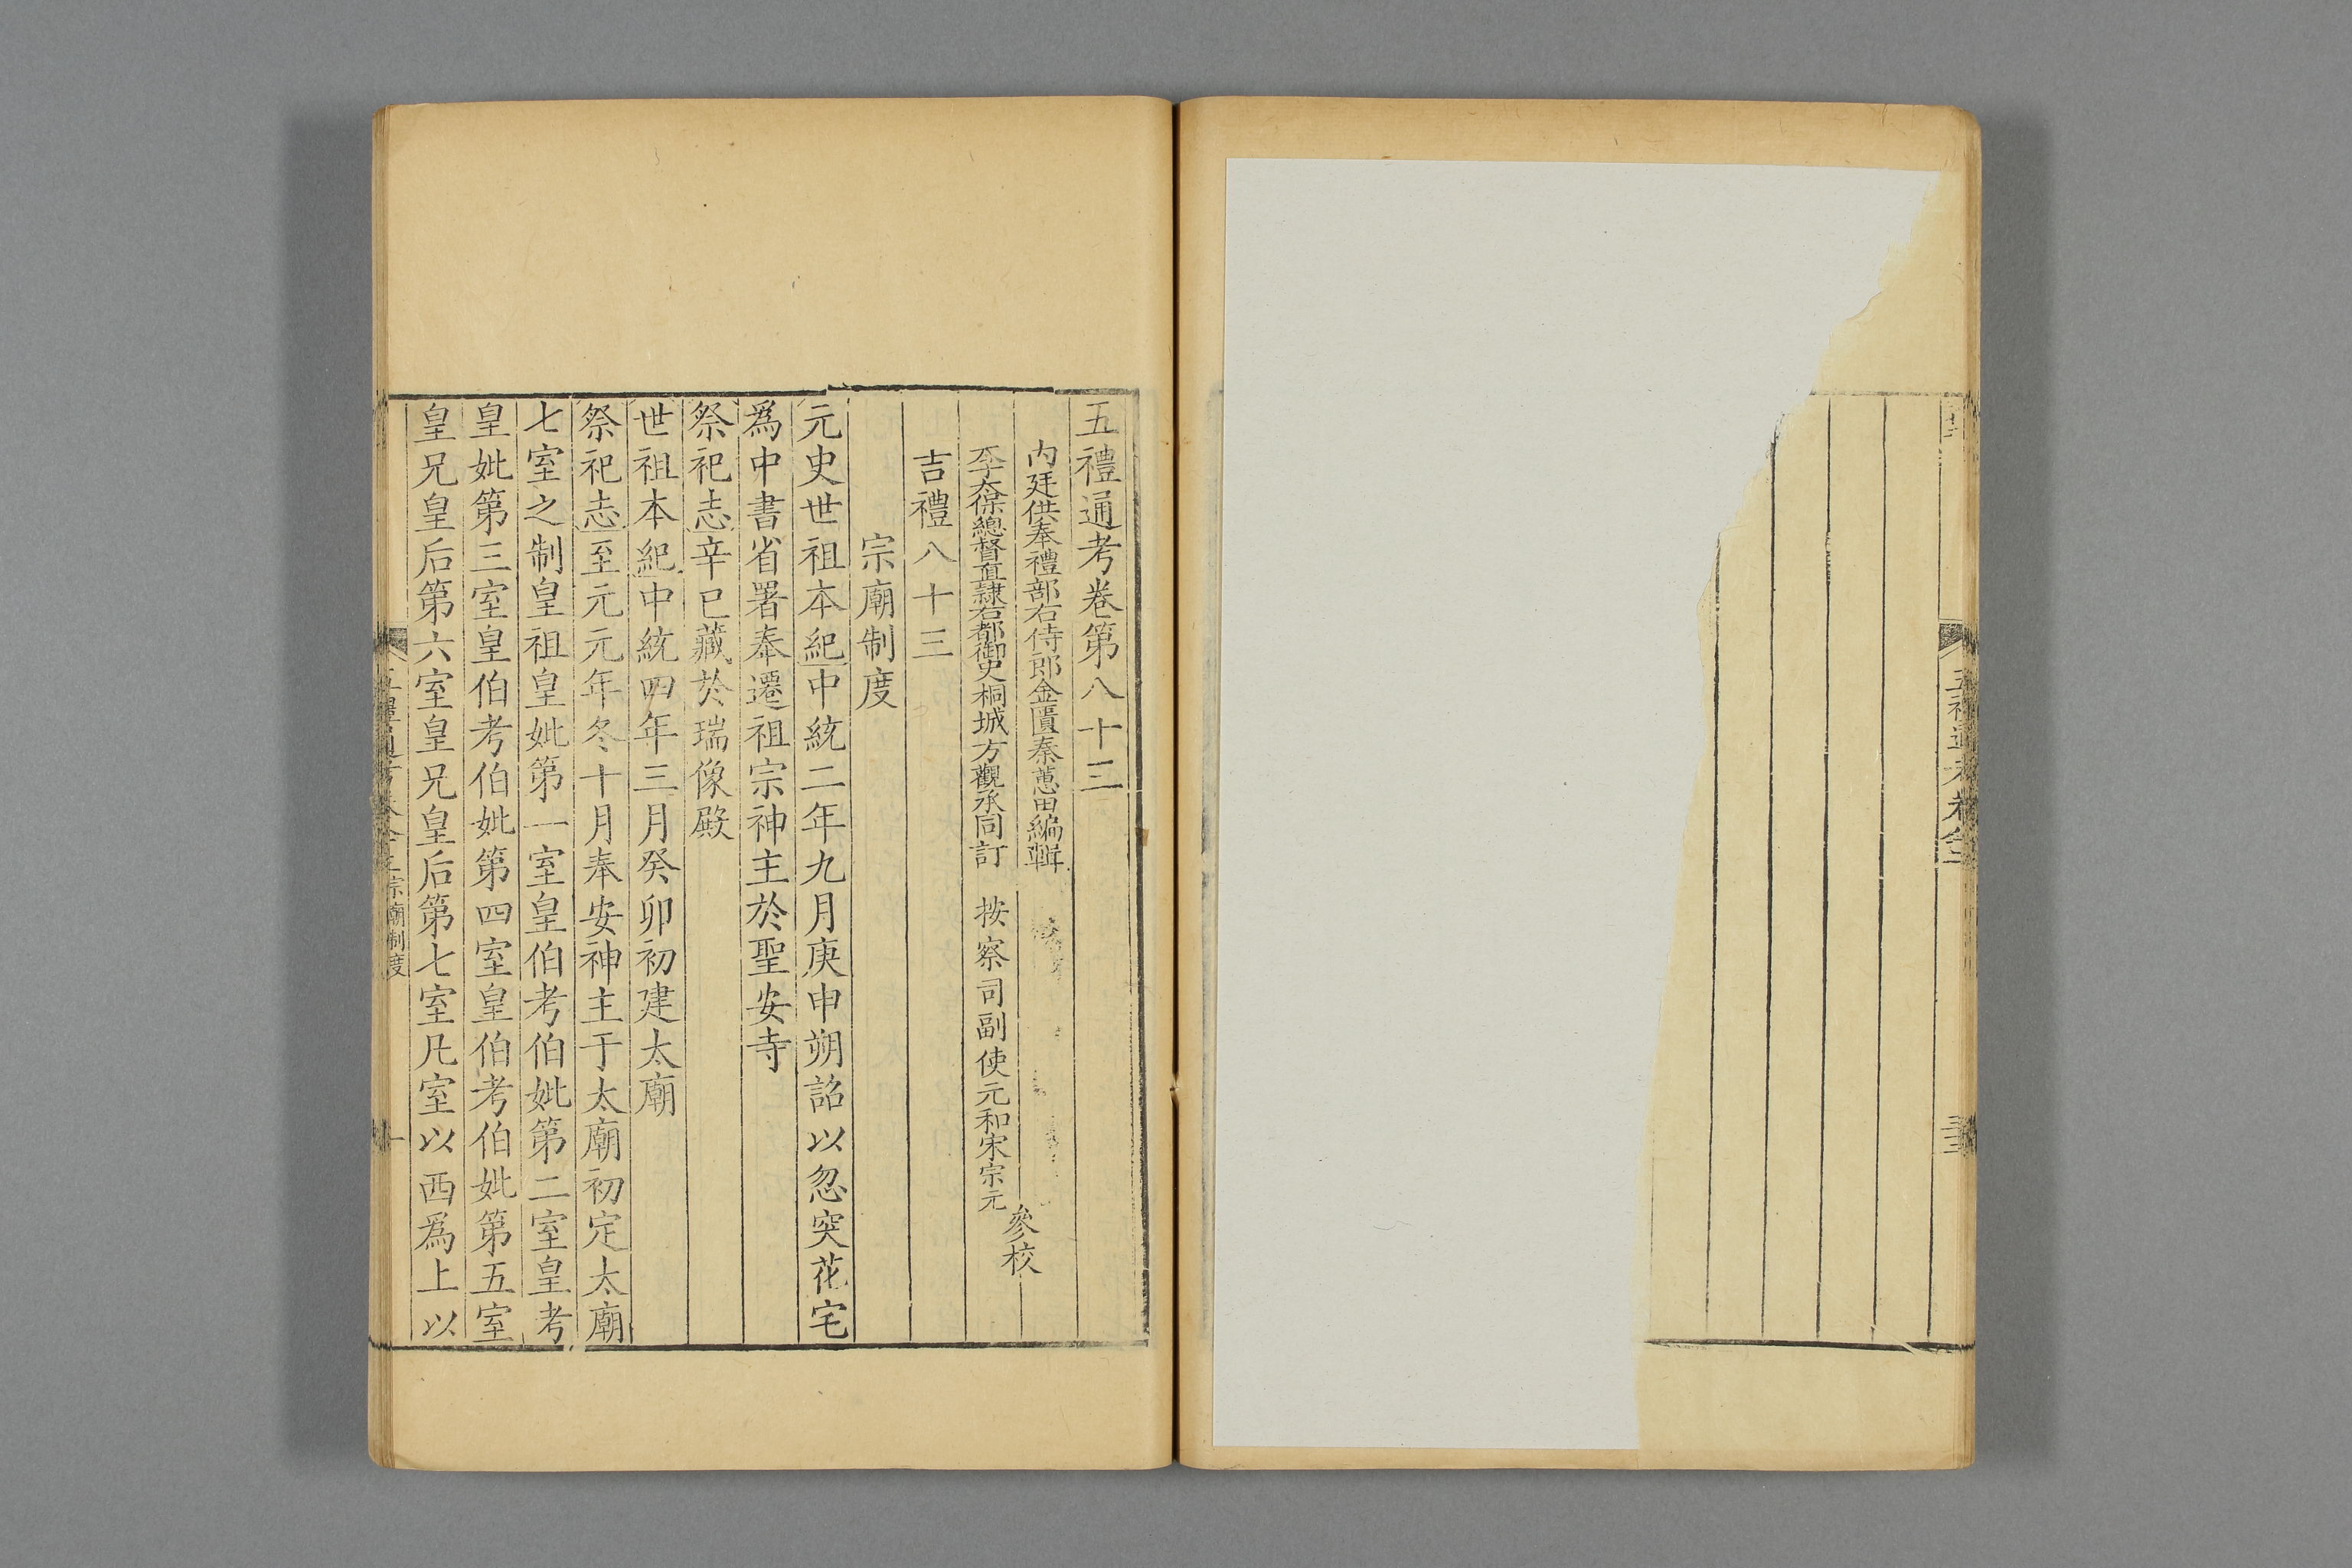 五禮通考卷第八十三
內廷供奉禮部右侍郎金匱秦蕙田編輯
太保總督直隸右都御史桐城方觀承同訂
按察司副使元和宋宗元
參校
吉禮八十三
宗廟制度
元史世祖本紀中統二年九月庚申朔詔以忽突花宅
爲中書省署奉遷祖宗神主於聖安寺
祭祀志辛巳藏於瑞像殿
世祖本紀中統四年三月癸卯初建太廟
祭祀志至元元年冬十月奉安神主于太廟初定太廟
七室之制皇祖皇妣第一室皇伯考伯妣第二室皇考
皇妣第三室皇伯考伯妣第四室皇伯考伯妣第五室
皇兄皇后第六室皇兄皇后第七室凡室以西爲上以
宗廟制度